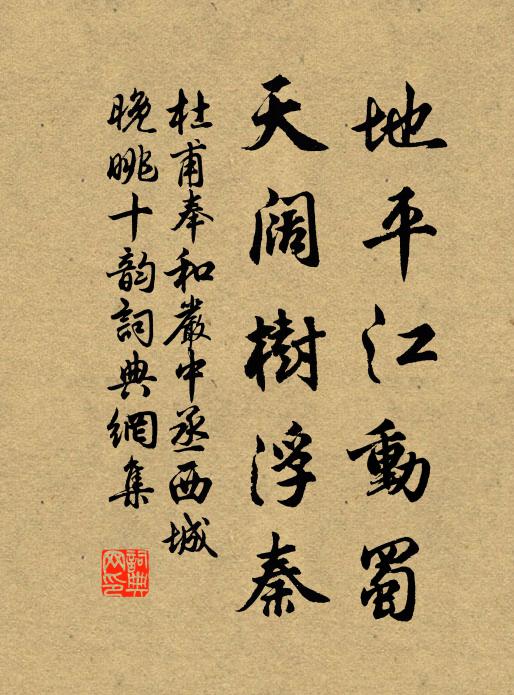 地平江動蜀
天阔樹浮秦
杜甫奉和嚴中丞西城
晚眺十韵詞典網集
詞典网印